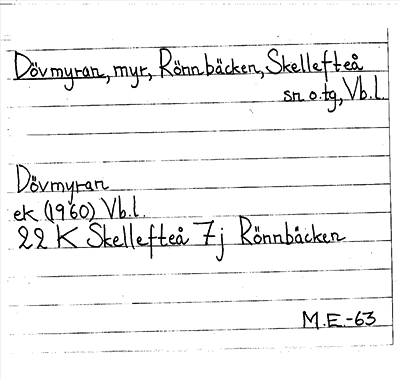 Dövmyran, myr, Rönnbäcken, Skellefteå
sn o. tg, Vb.l.
Dövmyran
ek (1960) Vb.l.
22 K Skellefteå 7j Rönnbäcken
M.E.-63